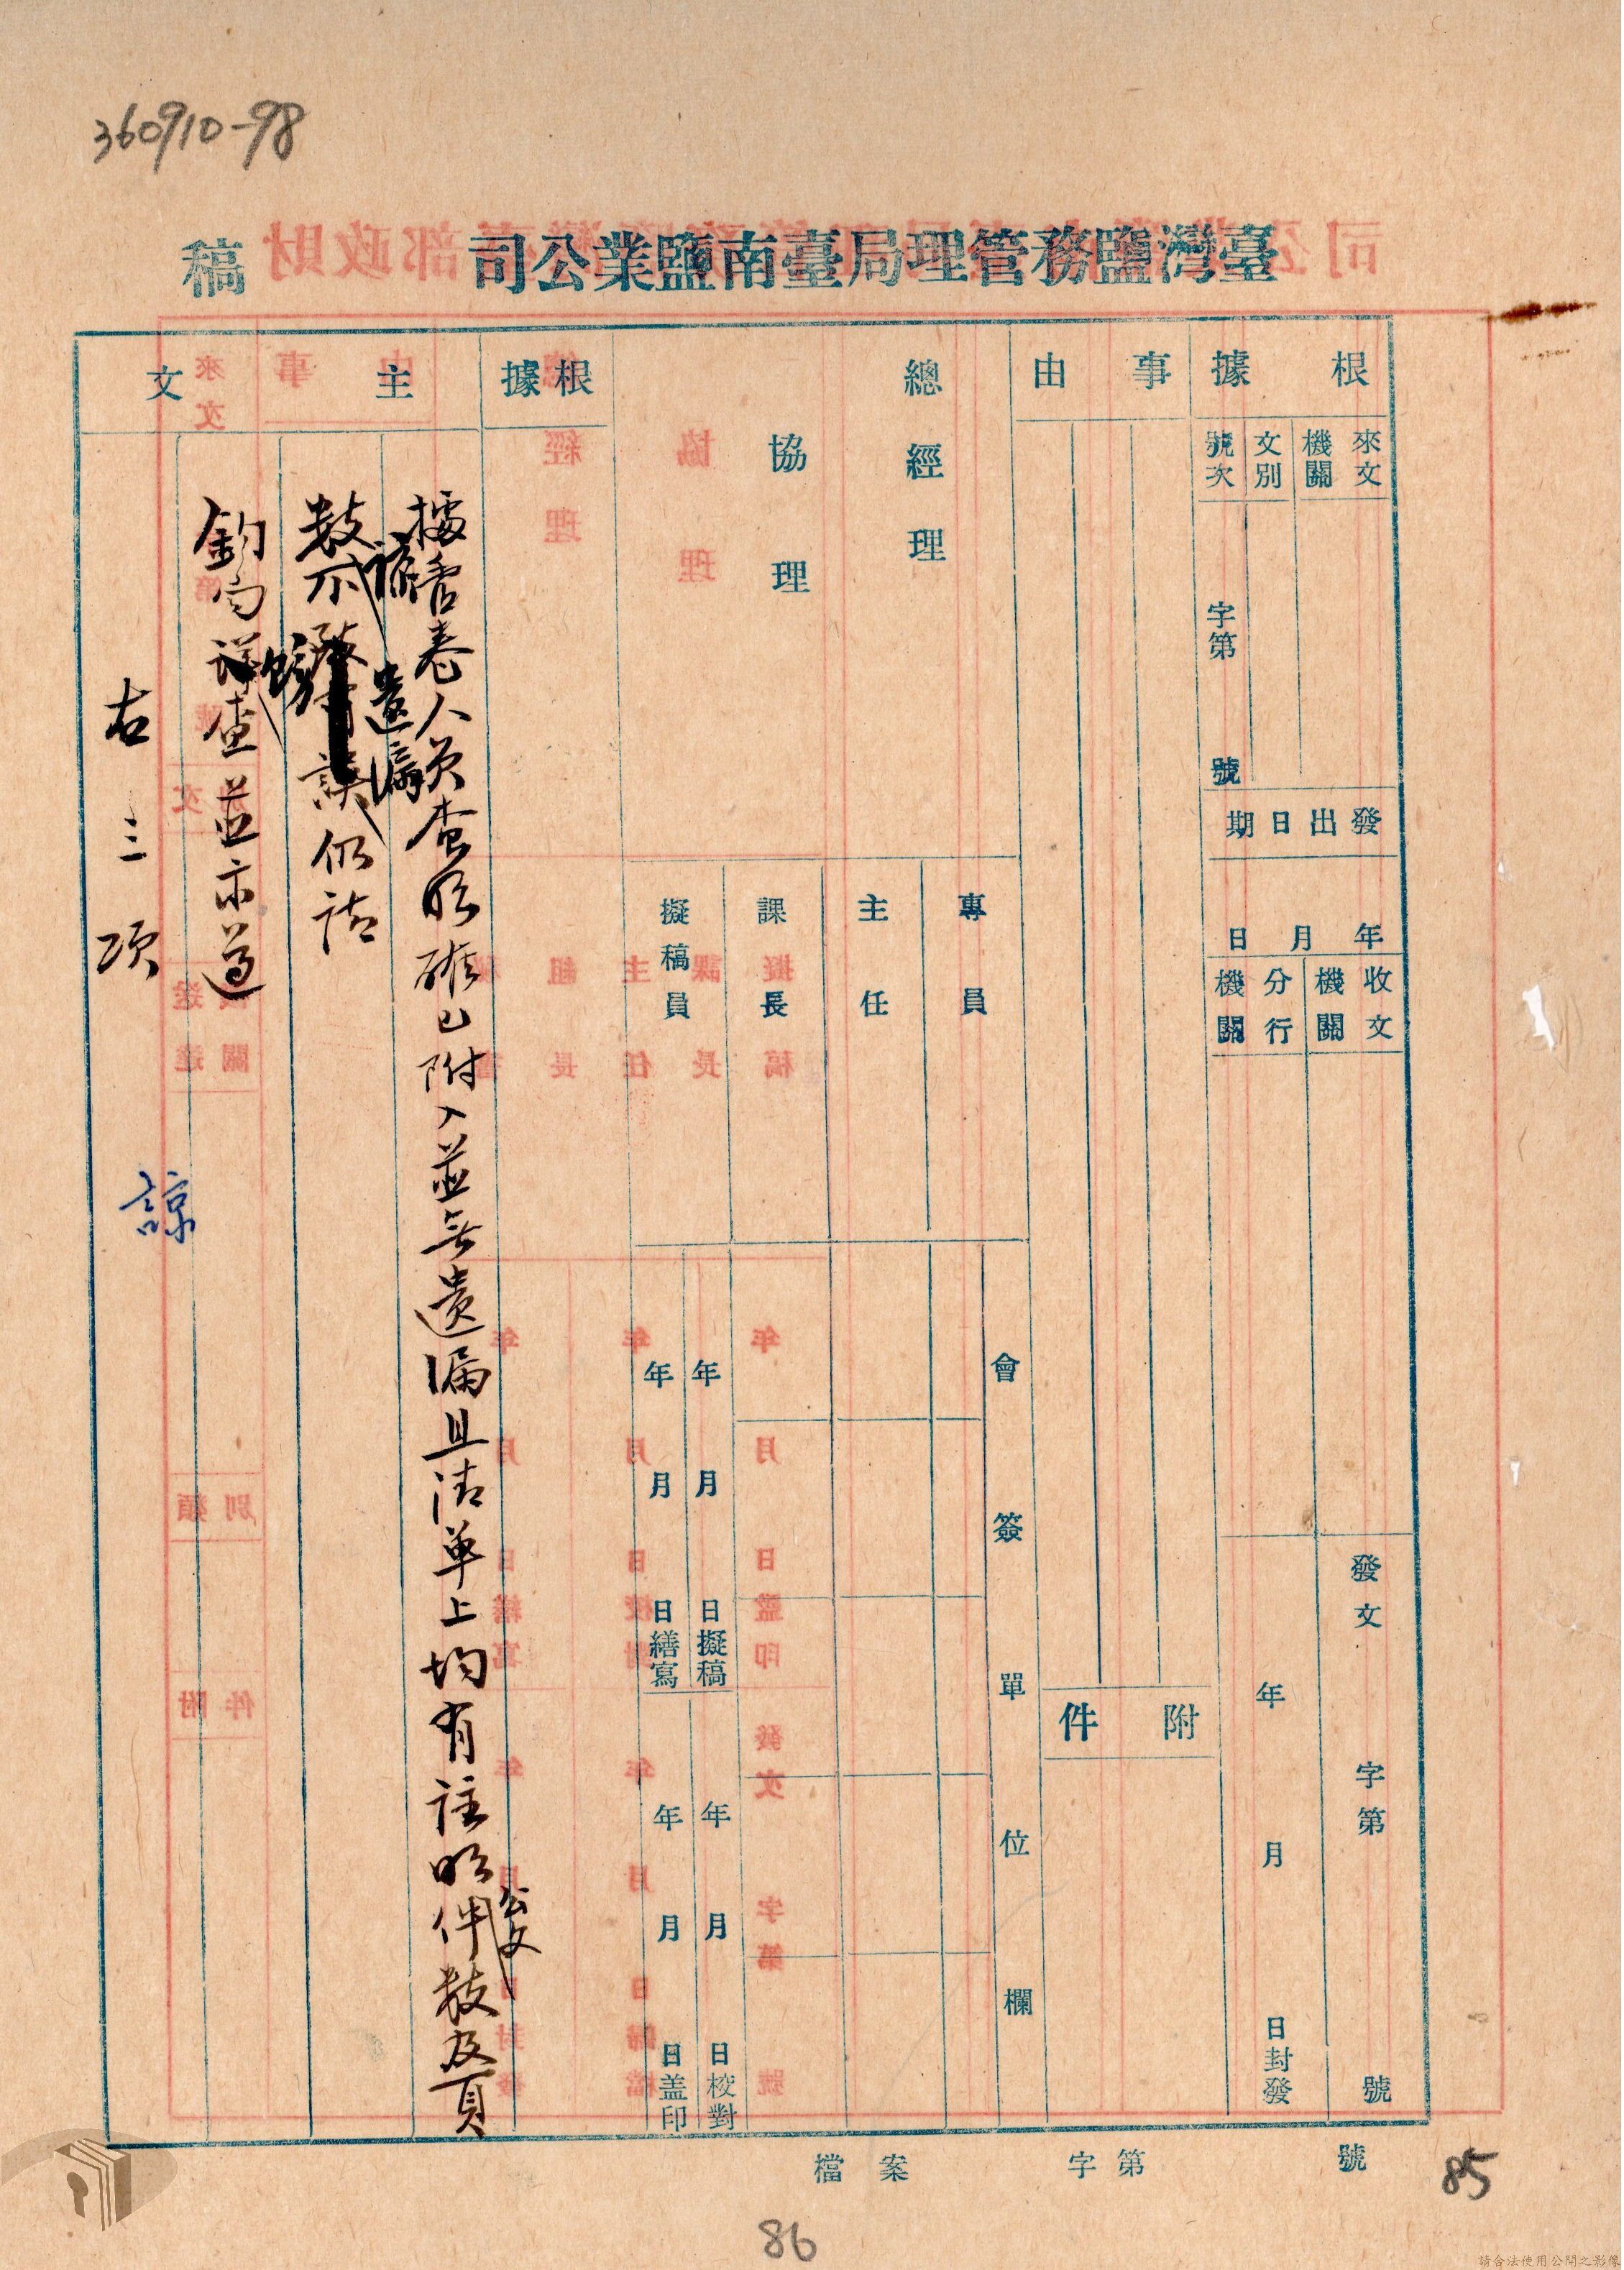 360910-98
臺灣鹽務管理局臺南鹽業公司
稿
根據
來文機關
文別
號次
字第
號
發出日期
年月日
收文機關
分行機關
發文
字第
號
年
月
日封發
事由
附件
總經理
協理
專員
主任
課長
擬稿員
會簽單位欄
年月日擬稿
年月日繕寫
年月日校對
年月日蓋印
根據
主文
公文
據管卷人員查明確已附入並無遺漏且清單上均有註明件數及頁
該
遺漏
數不
誤仍請
鈞局詳查並示遵
右三項
諒
檔案
字第
號
85
86
請合法使用公開之影像